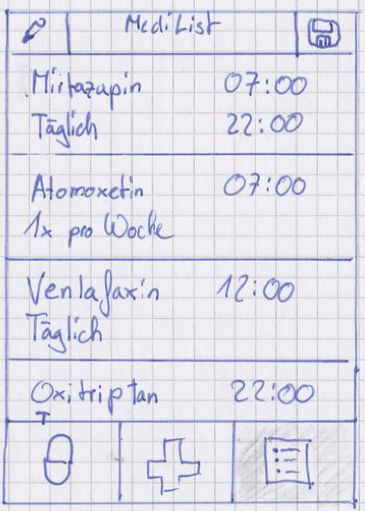 MediList
Mirtazapin 07:00
Täglich 22:00
Atomoxetin 07:00
1x pro Woche
Venlafaxin 12:00
Täglich
Oxitriptan 22:00
T